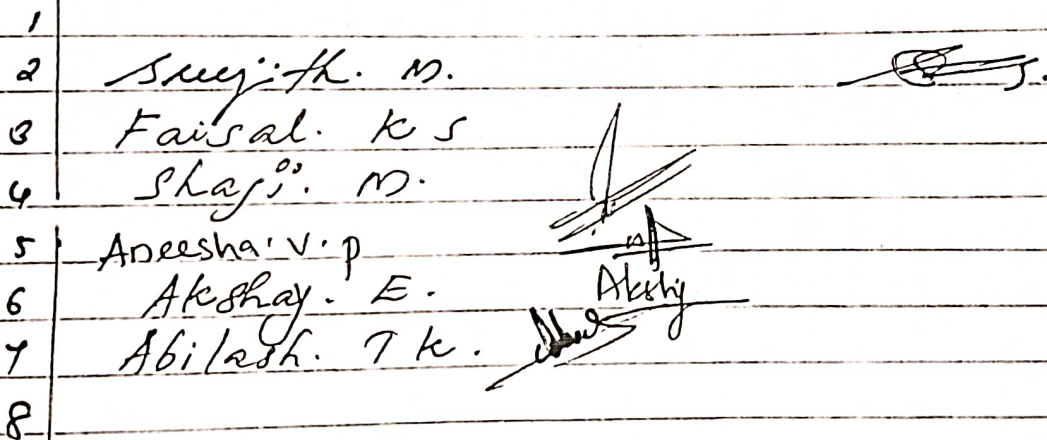 1
2 Sreejith. M.
3 Faisal. K S
4 Shaji. M.
5 Aneesha. V. P
6 Akshay. E. Akshy
7 Abilash. T K.
8